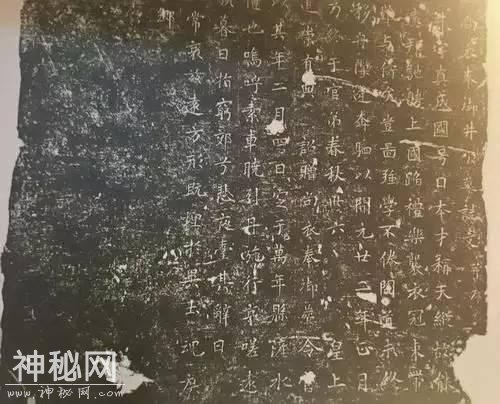 尚衣奉御井公墓誌文
井字真成國号日本才稱天縱故能
馳騁上國蹈禮樂襲衣冠束帶
難与儔矣豈圖強學不倦聞道未終
移舟隙逢奔駟以開元廿二年正月
乃終于官弟春秋卅六 皇上
追崇有典 詔贈尚衣奉御葬令官
以其年二月四日窆于萬年縣滻水
禮也嗚呼素車曉引丹旐行哀嗟遠
頹暮日指窮郊兮悲夜臺其辭曰
常哀茲遠方形既埋于異土魂庶
鄉
神秘网
WWW.SHENMIW.COM